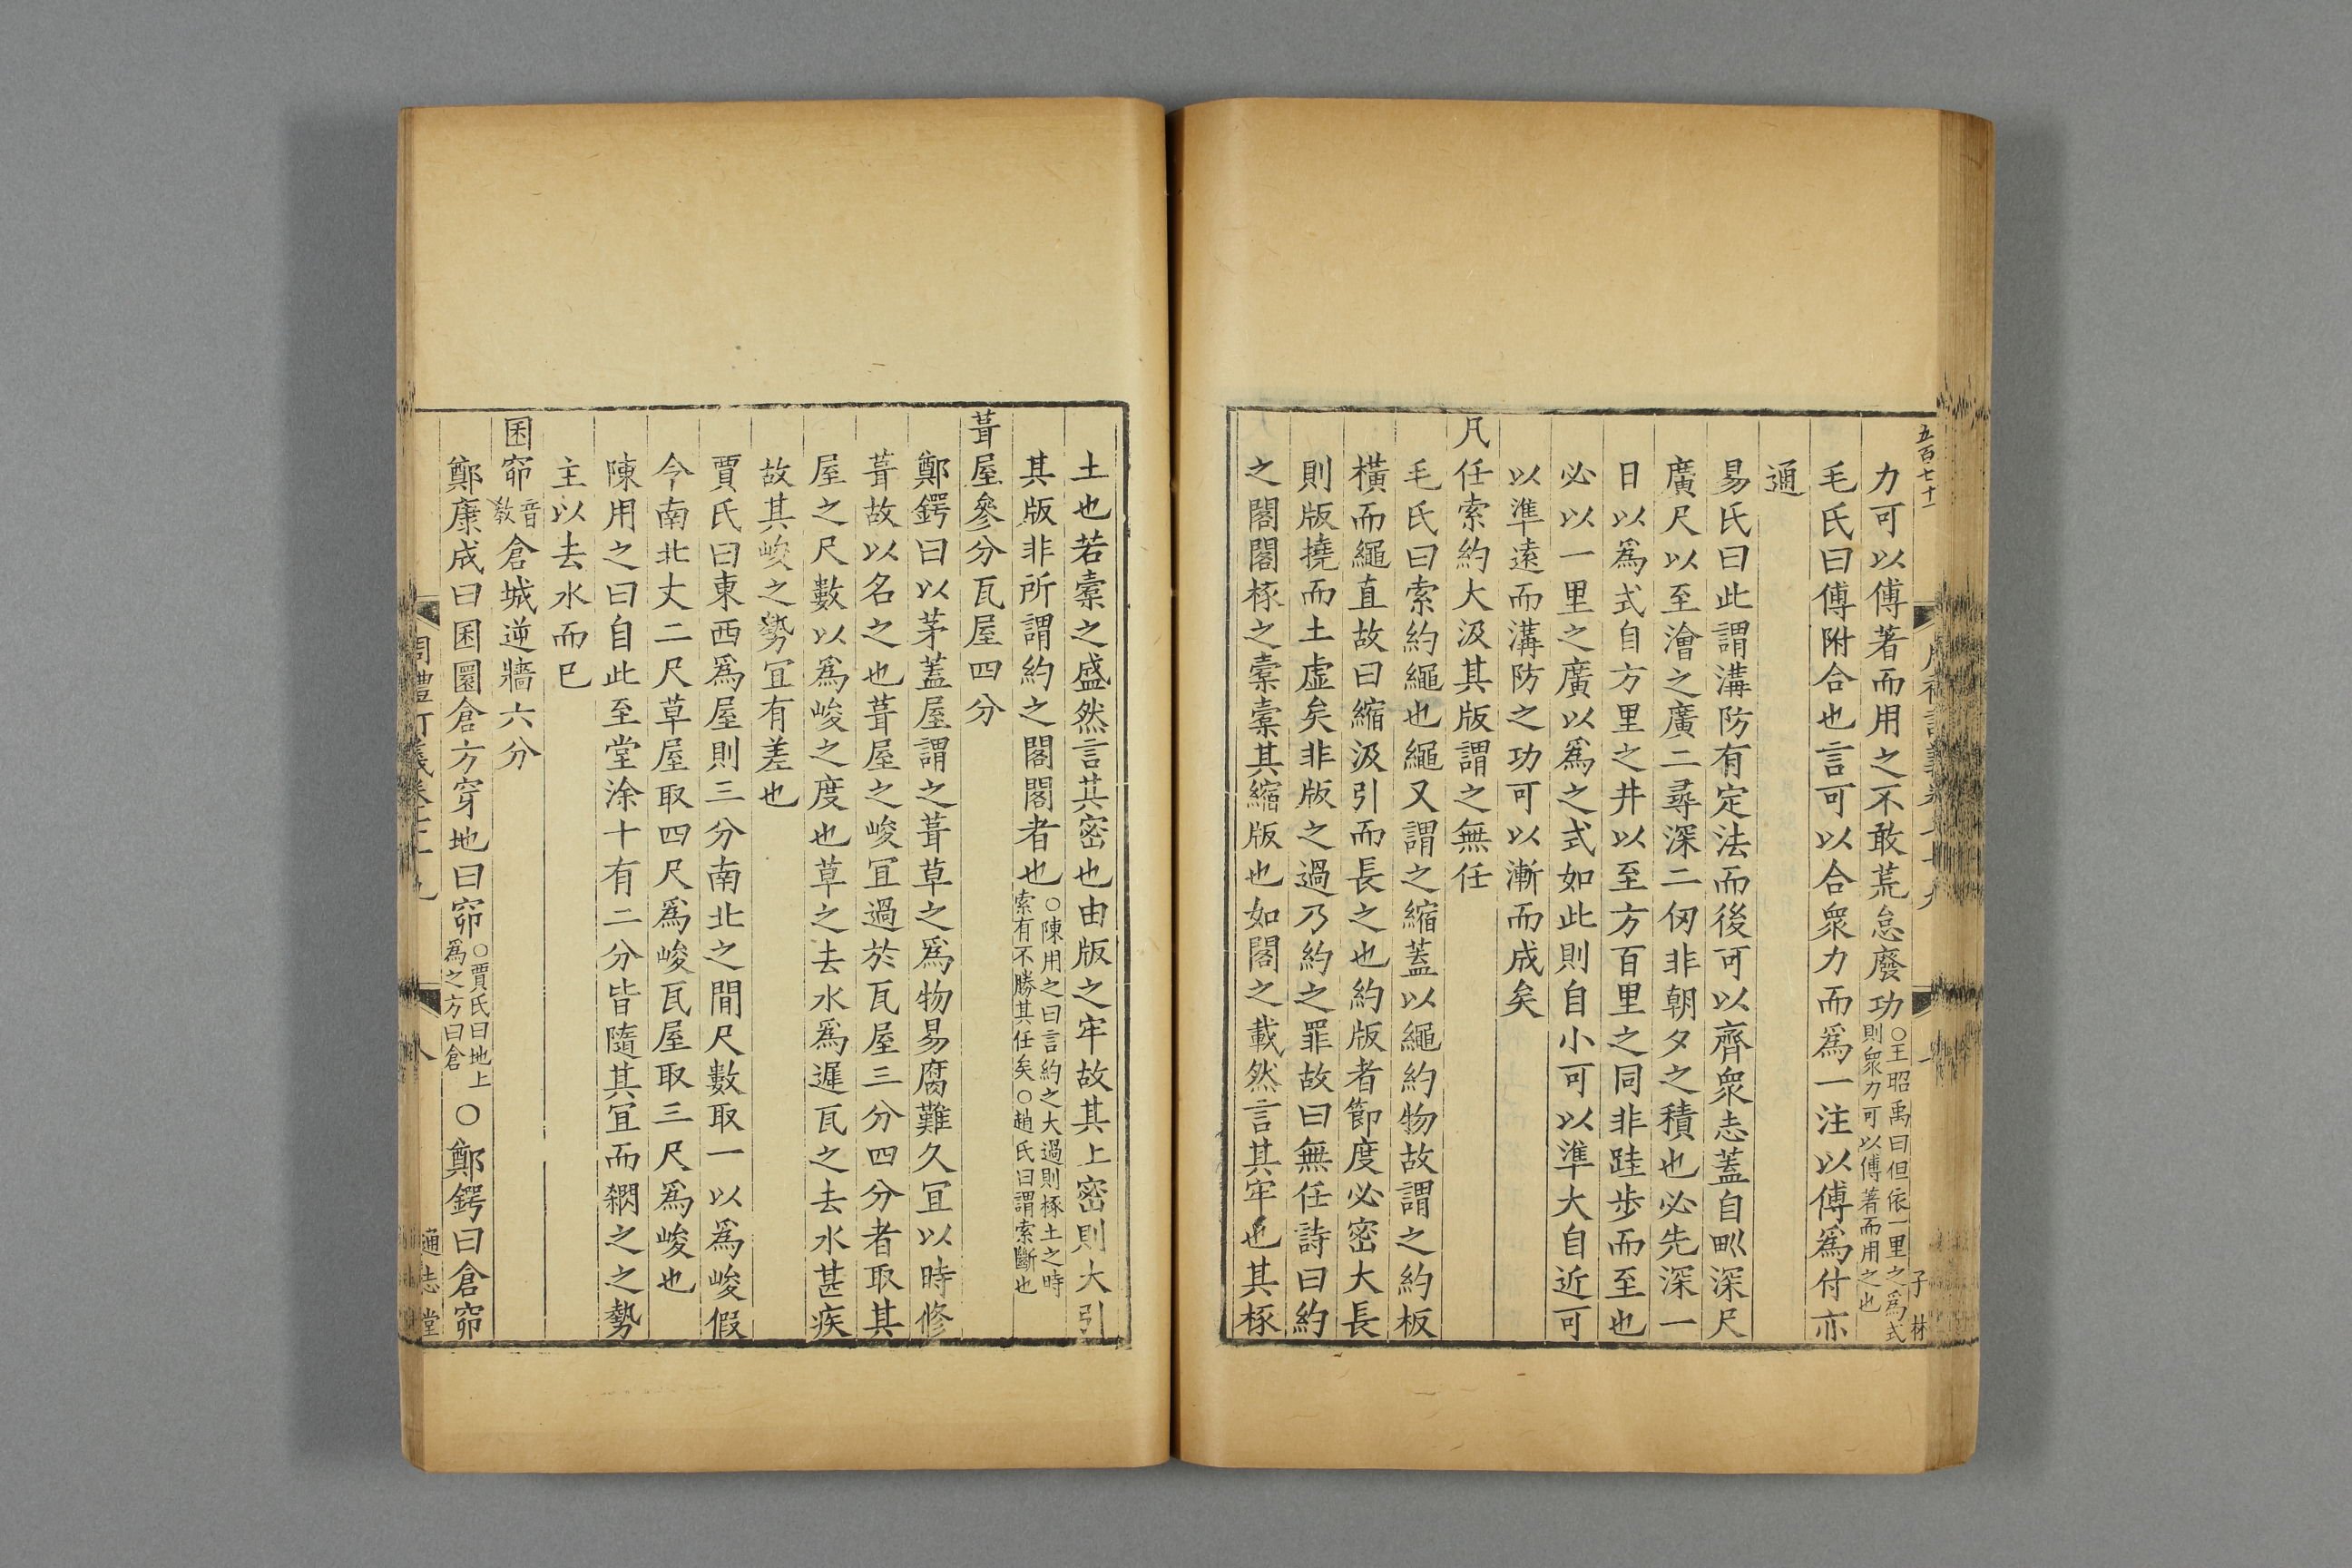 五百七十一
子林
力可以傅著而用之不敢荒怠廢功○王昭禹曰但依一里之爲式則衆力可以傅著而用之也
毛氏曰傅附合也言可以合衆力而爲一注以傅爲付亦
通
易氏曰此謂溝防有定法而後可以齊衆志蓋自甽深尺
廣尺以至澮之廣二尋深二仞非朝夕之積也必先深一
日以爲式自方里之井以至方百里之同非跬步而至也
必以一里之廣以爲之式如此則自小可以準大自近可
以準遠而溝防之功可以漸而成矣
凡任索約大汲其版謂之無任
毛氏曰索約繩也繩又謂之縮蓋以繩約物故謂之約板
橫而繩直故曰縮汲引而長之也約版者節度必密大長
則版撓而土虛矣非版之過乃約之罪故曰無任詩曰約
之閣閣椓之橐橐其縮版也如閣之載然言其牢也其椓
土也若橐之盛然言其密也由版之牢故其上密則大引
其版非所謂約之閣閣者也○陳用之曰言約之大過則椓土之時索有不勝其任矣○趙氏曰謂索斷也
葺屋參分瓦屋四分
鄭鍔曰以茅蓋屋謂之葺草之爲物易腐難久宜以時修
葺故以名之也葺屋之峻宜過於瓦屋三分四分者取其
屋之尺數以爲峻之度也草之去水爲遲瓦之去水甚疾
故其峻之勢宜有差也
賈氏曰東西爲屋則三分南北之間尺數取一以爲峻假
今南北丈二尺草屋取四尺爲峻瓦屋取三尺爲峻也
陳用之曰自此至堂涂十有二分皆隨其宜而閷之之勢
主以去水而已
囷窌音敎倉城逆牆六分
鄭康成曰囷圜倉方穿地曰窌○賈氏曰地上爲之方曰倉○鄭鍔曰倉窌
周禮訂義卷七十九
八
通志堂